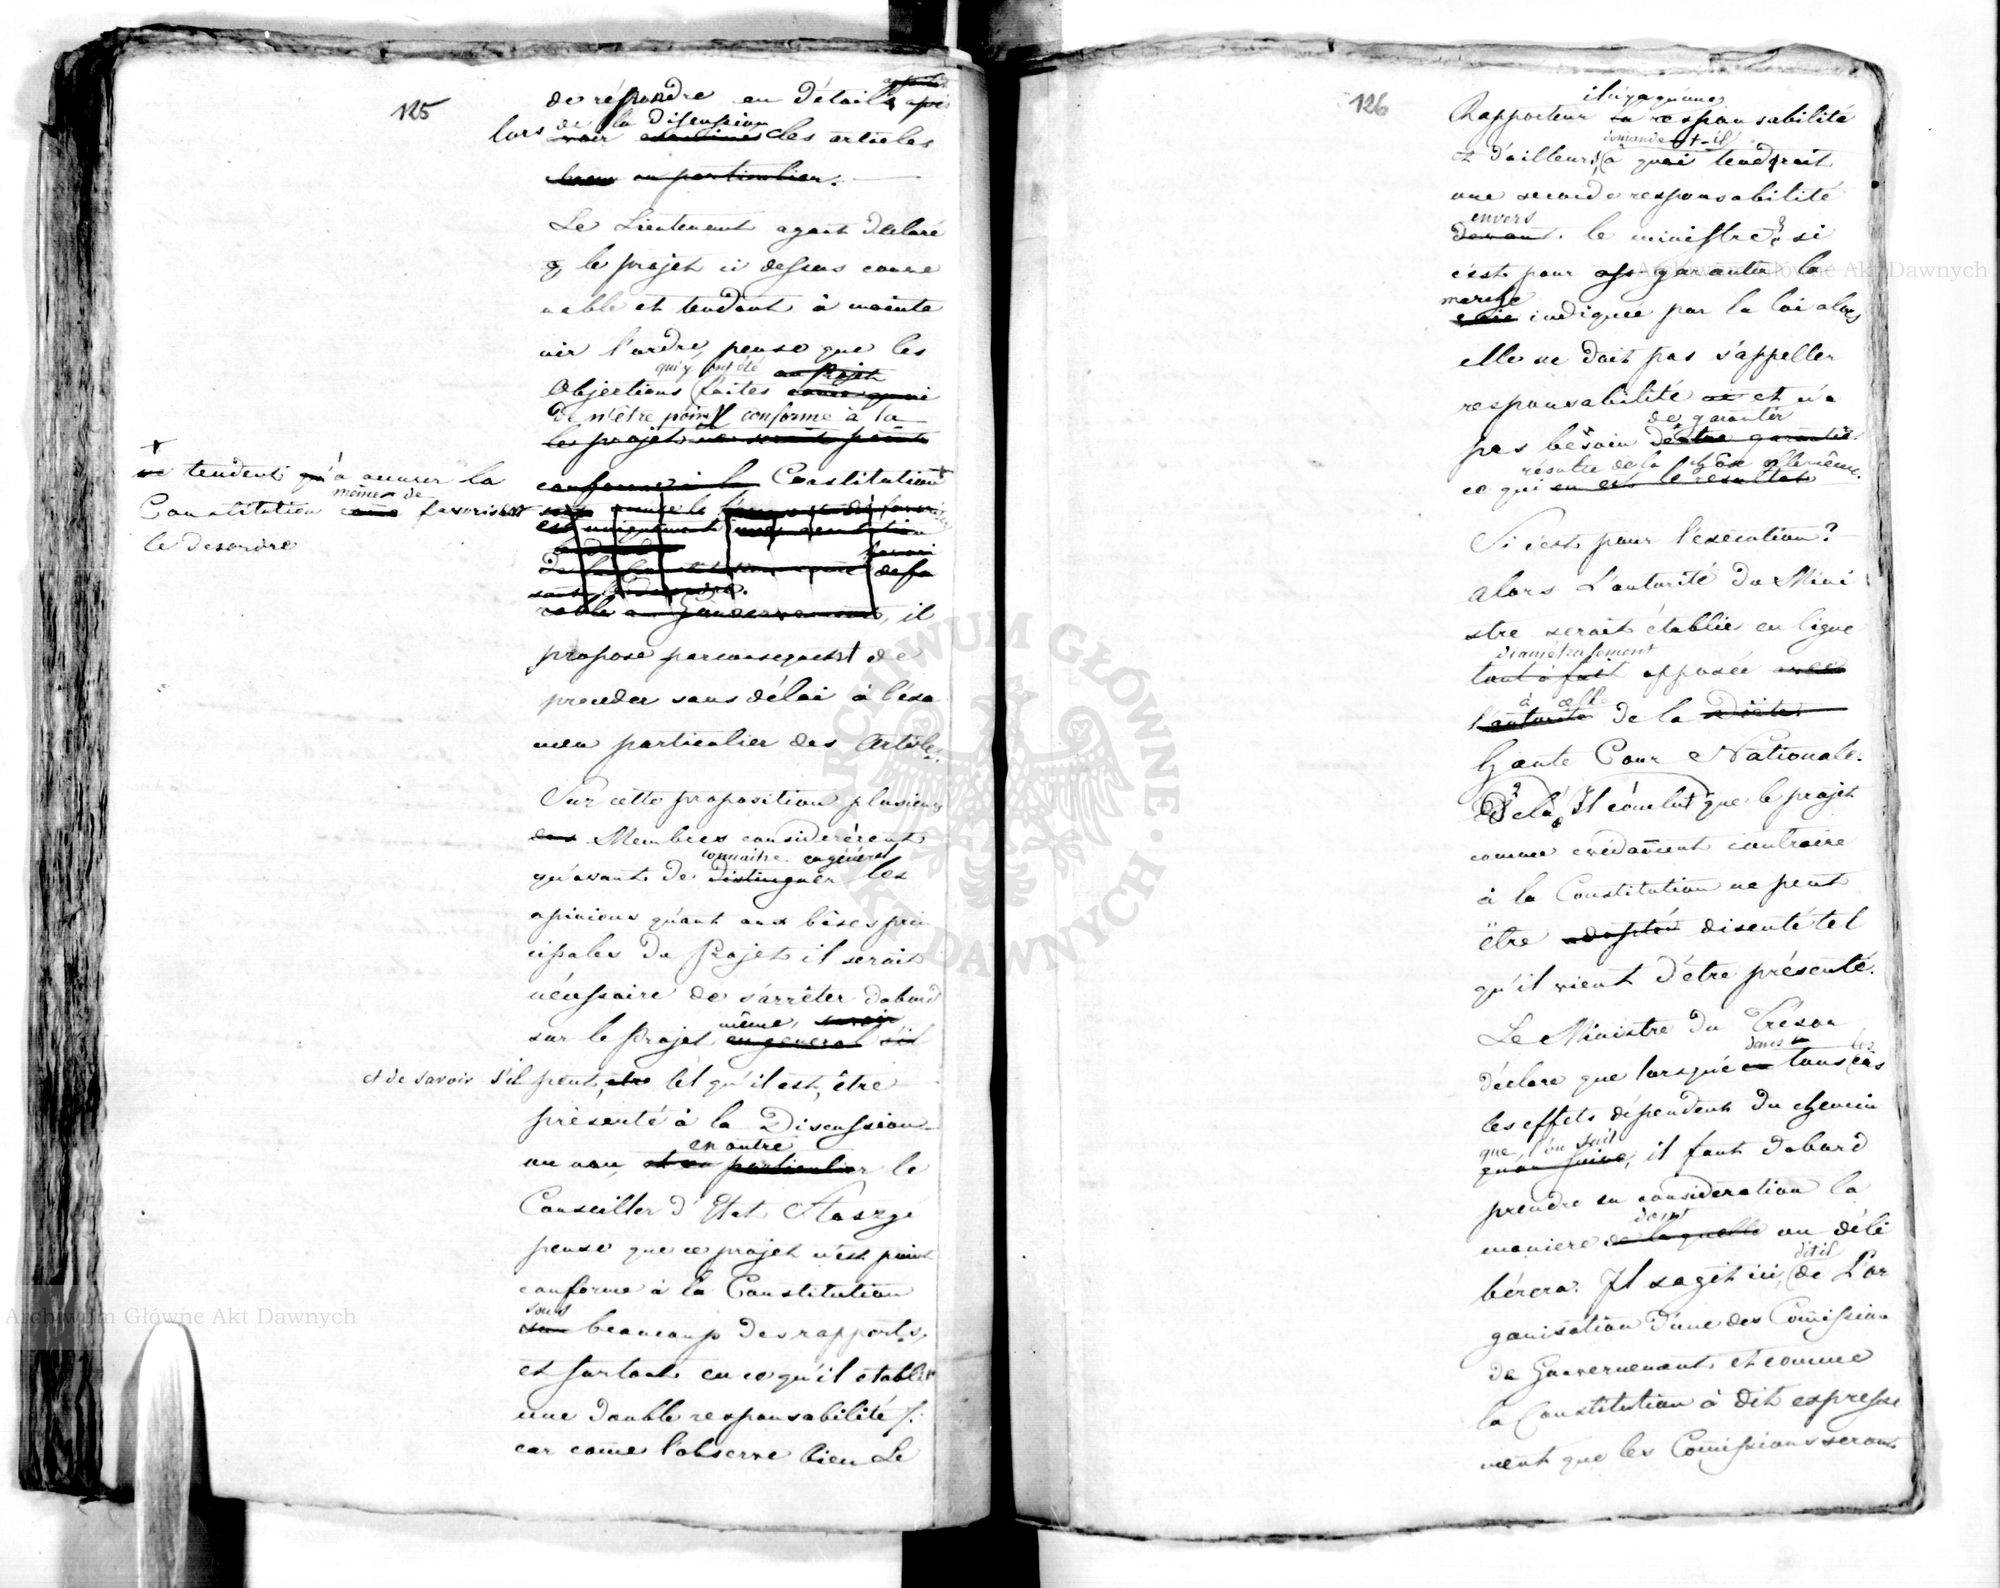 125
de répondre en détail
lors de la discussion des articles
Le Lieutenant ayant declaré
q le projet ci dessus conve
nable et tendant à mainte
nir l'ordre, pense que les
qui y ont été
Objections faites
de n'être point conforme à la
Constitution +
+
tendent à accuser la
Constitution même de favoriser
le desordre
il
propose par consequent de
proceder sans délai à l'exa
men particulier des Articles.
Sur cette proposition plusieurs
Membres considerèrent
connaitre en général
qu'avant de distinguer les
opinions quant aux bases prin
cipales du Projet il serait
nécessaire de s'arrêter d'abord
même,
sur le Projet en general s'il
et de savoir s'il peut, tel qu'il est, être
présenté à la Discussion
en outre
ou non, et en particulier le
Conseiller d'Etat
pense que ce projet n'est point
conforme à la Constitution
sous
beaucoup des rapports,
et surtout en ce qu'il etablit
une double responsabilité
car come l'observe bien le
126
il n'y a qu'une
Rapporteur sa responsabilité
demande-t-il
et d'ailleurs, à quoi tendrait
une seconde responsabilité
envers
devant le ministre? si
c'est pour garantir la
marche
voie indiquée par la loi alors
elle ne doit pas s'appeller
responsabilité et n'a
de garantir
pas besoin d'être garantie
résulte de la chose elle même.
ce qui en est le resultat
Si c'est pour l'exécution?
alors l'autorité du Mini
stre serait établie en ligne
diamétralement
tout à fait opposée avec
à celle
l'autorité de la Diete
Haute Cour Nationale.
De là, Il conclut que le projet
comme evidament contraire
à la Constitution ne peut
être adopté discuté tel
qu'il vient d'être présenté.
Le Ministre du Trésor
dans les
déclare que lorsque en tous cas
les effets dépendent du chemin
que l'on suit
qu'on suive, il faut d'abord
prendre en consideration la
dont
maniere de laquelle on déli
dit il
bérera. Il s'agit ici, de l'or
ganisation d'une des Comission
de Gouvernement et comme
la Constitution à dit expresse
ment que les Comissions seront
Archiwum Główne Akt Dawnych
Archiwum Główne Akt Dawnych
ARCHIWUM GŁÓWNE AKT DAWNYCH